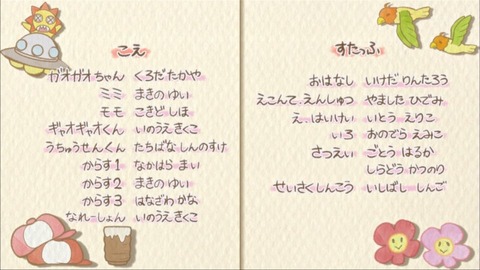 こえ
ガオガオちゃん くろだ たかや
ミミ まきの ゆい
モモ こきど しほ
ギャオギャオくん いのうえ きくこ
うちゅうせんくん たちばな しんのすけ
からす1 なかはら まい
からす2 まきの ゆい
からす3 はなざわ かな
なれーしょん いのうえ きくこ
すたっふ
おはなし いけだ りんたろう
えこんて.えんしゅつ やました ひでみ
え.はいけい いとう えりこ
いろ おのでら えみこ
さつえい ごとう はるか
しらどう かつのり
せいさくしんこう いしばし しんご